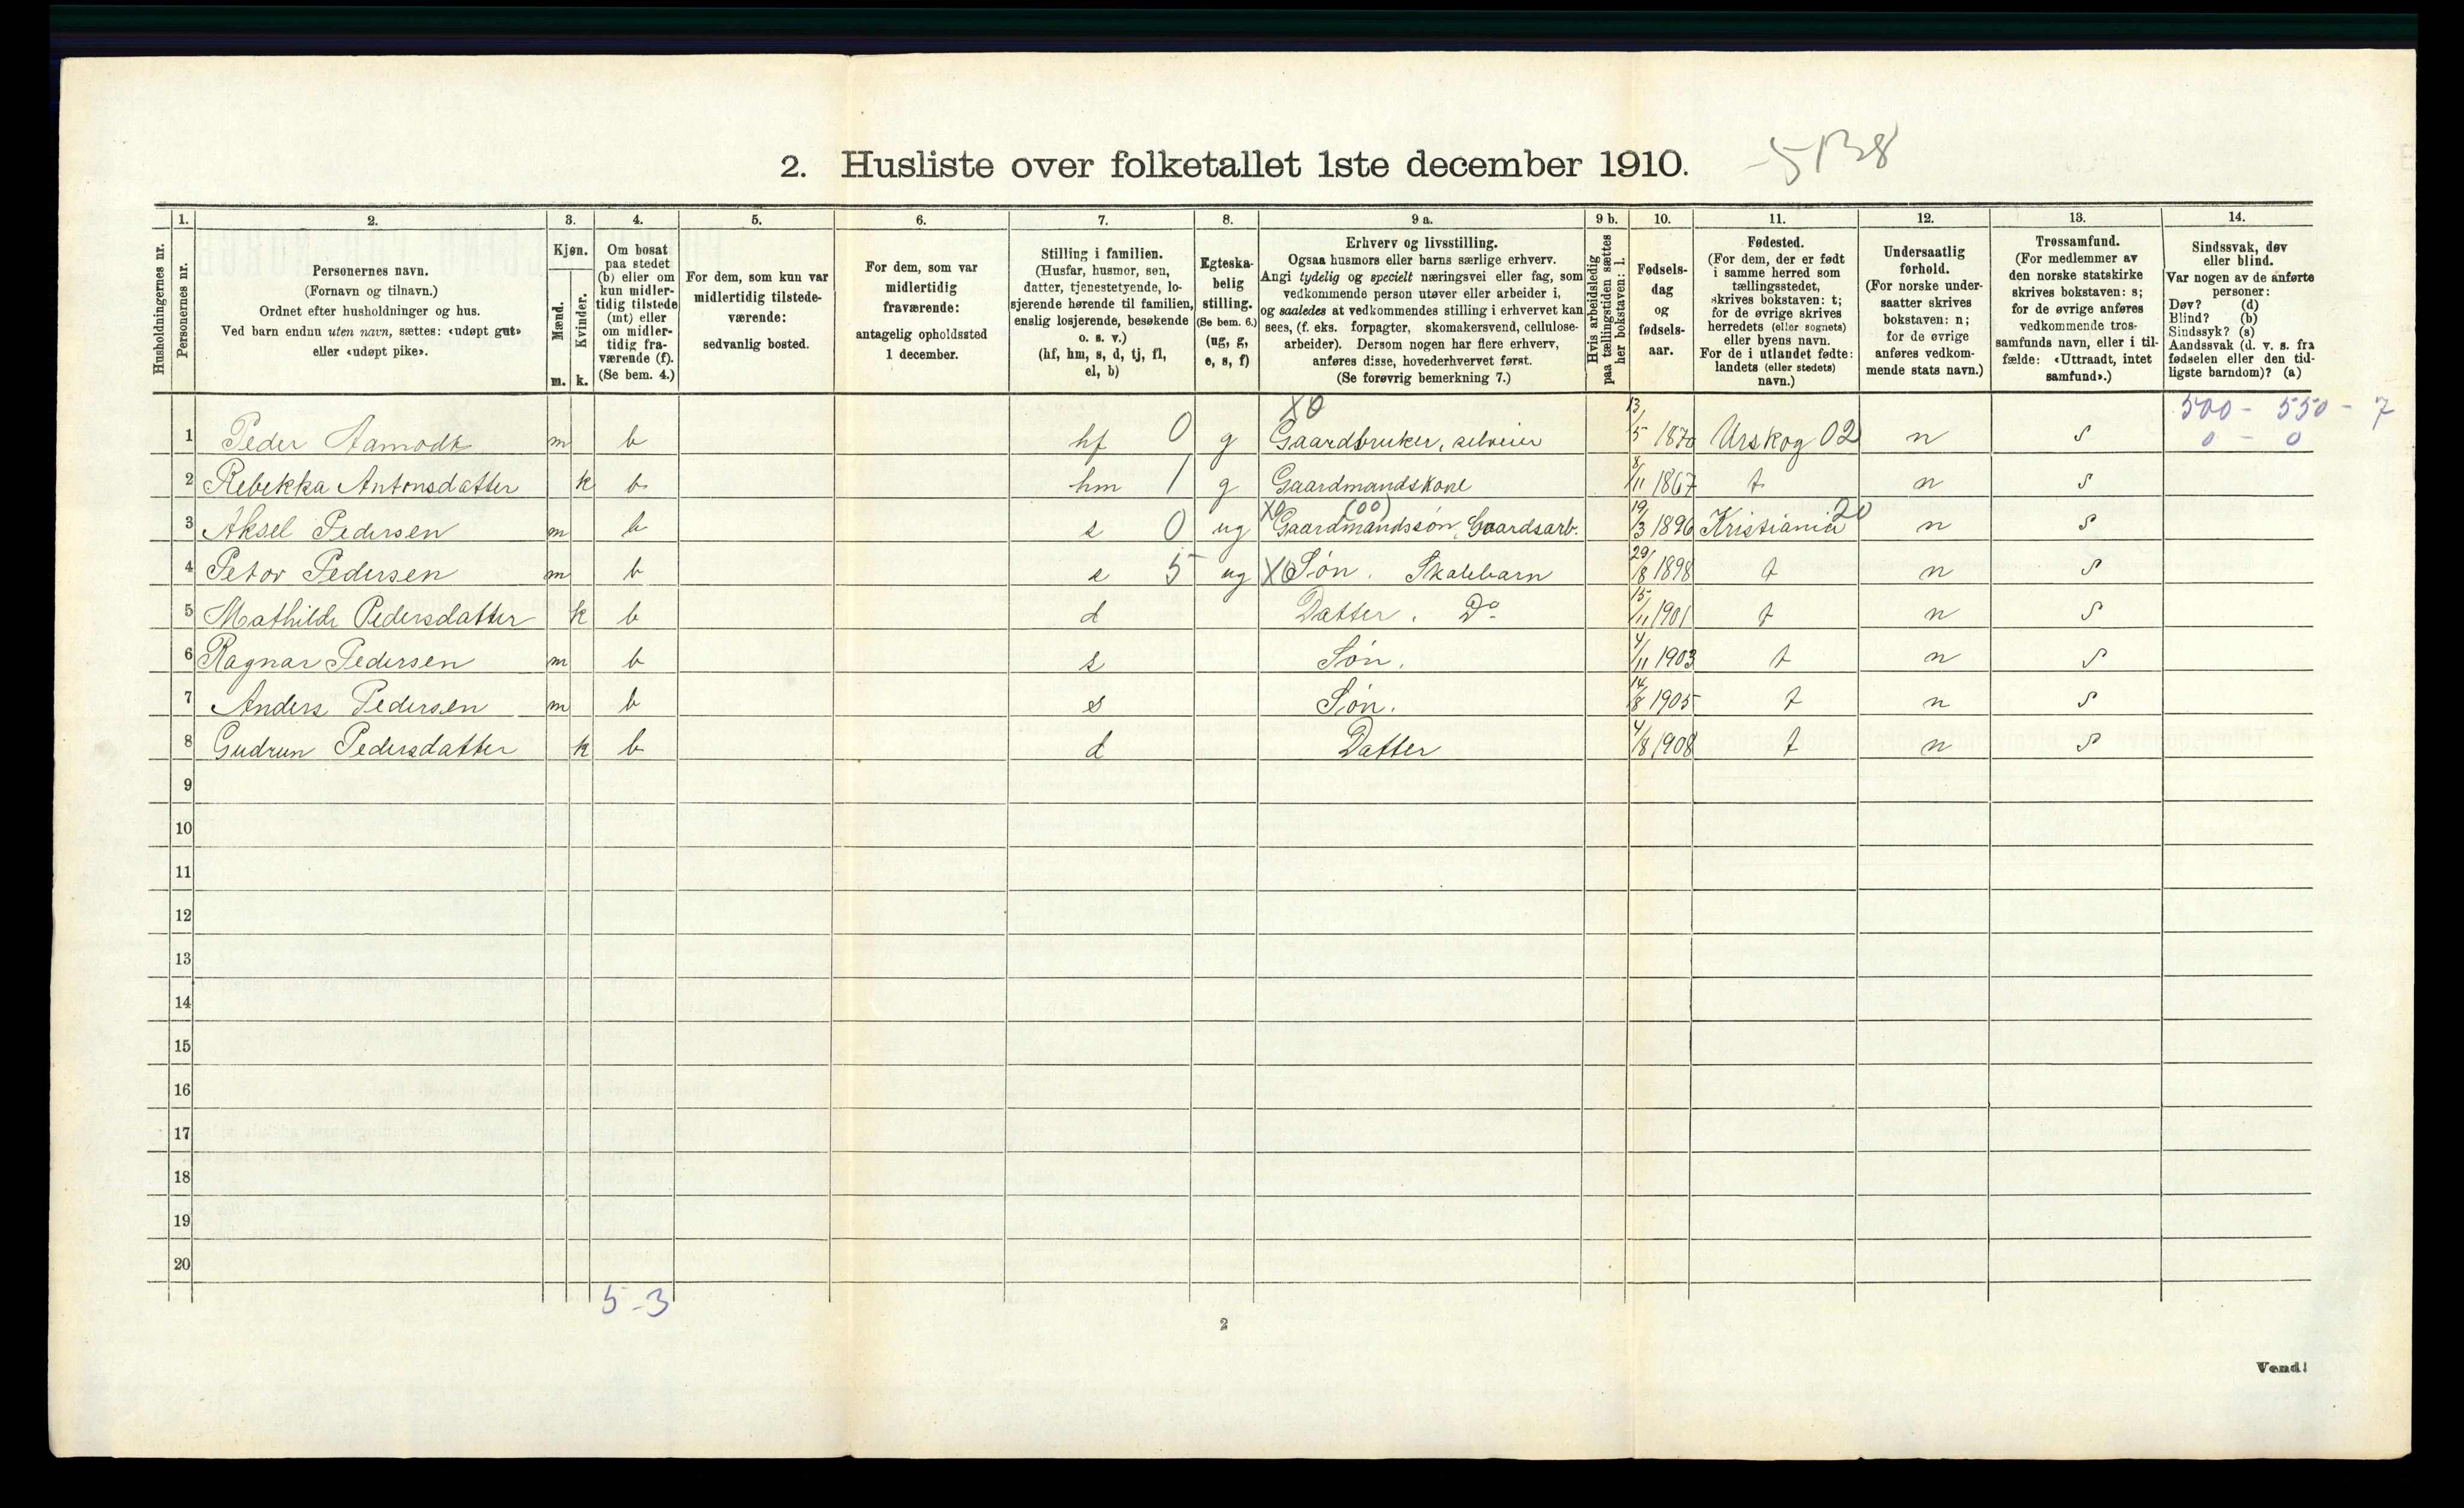 2. Husliste over folketallet 1ste december 1910. -5138
Husholdningernes nr.
1. Personernes nr.
2. Personernes navn.
(Fornavn og tilnavn.)
Ordnet efter husholdninger og hus.
Ved barn endnu uten navn, sættes: «udøpt gut»
eller «udøpt pike».
3. Kjøn.
Mænd. Kvinder.
m. k.
4. Om bosat
paa stedet
(b) eller om
kun midler-
tidig tilstede
(mt) eller
om midler-
tidig fra-
værende (f).
(Se bem. 4.)
5. For dem, som kun var
midlertidig tilstede-
værende:
sedvanlig bosted.
6. For dem, som var
midlertidig
fraværende:
antagelig opholdssted
1 december.
7. Stilling i familien.
(Husfar, husmor, søn,
datter, tjenestetyende, lo-
sjerende hørende til familien,
enslig losjerende, besøkende
o. s. v.)
(hf, hm, s, d, tj, fl,
el, b)
8. Egteska-
belig
stilling.
(Se bem. 6.)
(ug, g,
e, s, f)
9 a. Erhverv og livsstilling.
Ogsaa husmors eller barns særlige erhverv.
Angi tydelig og specielt næringsvei eller fag, som
vedkommende person utøver eller arbeider i,
og saaledes at vedkommendes stilling i erhvervet kan
sees, (f. eks. forpagter, skomakersvend, cellulose-
arbeider). Dersom nogen har flere erhverv,
anføres disse, hovederhvervet først.
(Se forøvrig bemerkning 7.)
9 b. Hvis arbeidsledig
paa tællingstiden sættes
her bokstaven: l.
10. Fødsels-
dag
og
fødsels-
aar.
11. Fødested.
(For dem, der er født
i samme herred som
tællingsstedet,
skrives bokstaven: t;
for de øvrige skrives
herredets (eller sognets)
eller byens navn.
For de i utlandet fødte:
landets (eller stedets)
navn.)
12. Undersaatlig
forhold.
(For norske under-
saatter skrives
bokstaven: n;
for de øvrige
anføres vedkom-
mende stats navn.)
13. Trossamfund.
(For medlemmer av
den norske statskirke
skrives bokstaven: s;
for de øvrige anføres
vedkommende tros-
samfunds navn, eller i til-
fælde: «Uttraadt, intet
samfund».)
14. Sindssvak, døv
eller blind.
Var nogen av de anførte
personer:
Døv? (d)
Blind? (b)
Sindssyk? (s)
Aandssvak (d. v. s. fra
fødselen eller den tid-
ligste barndom)? (a)
X0 500 - 550 - 7
1 Peder Aamodt m b hf 0 g Gaardbruker, selveier 13/5 1870 Urskog 02 n s 0 - 0
2 Rebekka Antonsdatter k b hm 1 g Gaardmandskone 8/11 1867 t n s
X0 (00)
3 Aksel Pedersen m b s 0 ug Gaardmandssøn, Gaardsarb. 19/3 1896 Kristiania 20 n s
4 Petor Pedersen m b s 5 ug X0 Søn. Skolebarn 29/8 1898 t n s
5 Mathilde Pedersdatter k b d Datter. Do 15/11 1901 t n s
6 Ragnar Pedersen m b s Søn. 4/11 1903 t n s
7 Anders Pedersen m b s Søn. 14/8 1905 t n s
8 Gudrun Pedersdatter k b d Datter 4/8 1908 t n s
9
10
11
12
13
14
15
16
17
18
19
20
5-3
2
Vend!